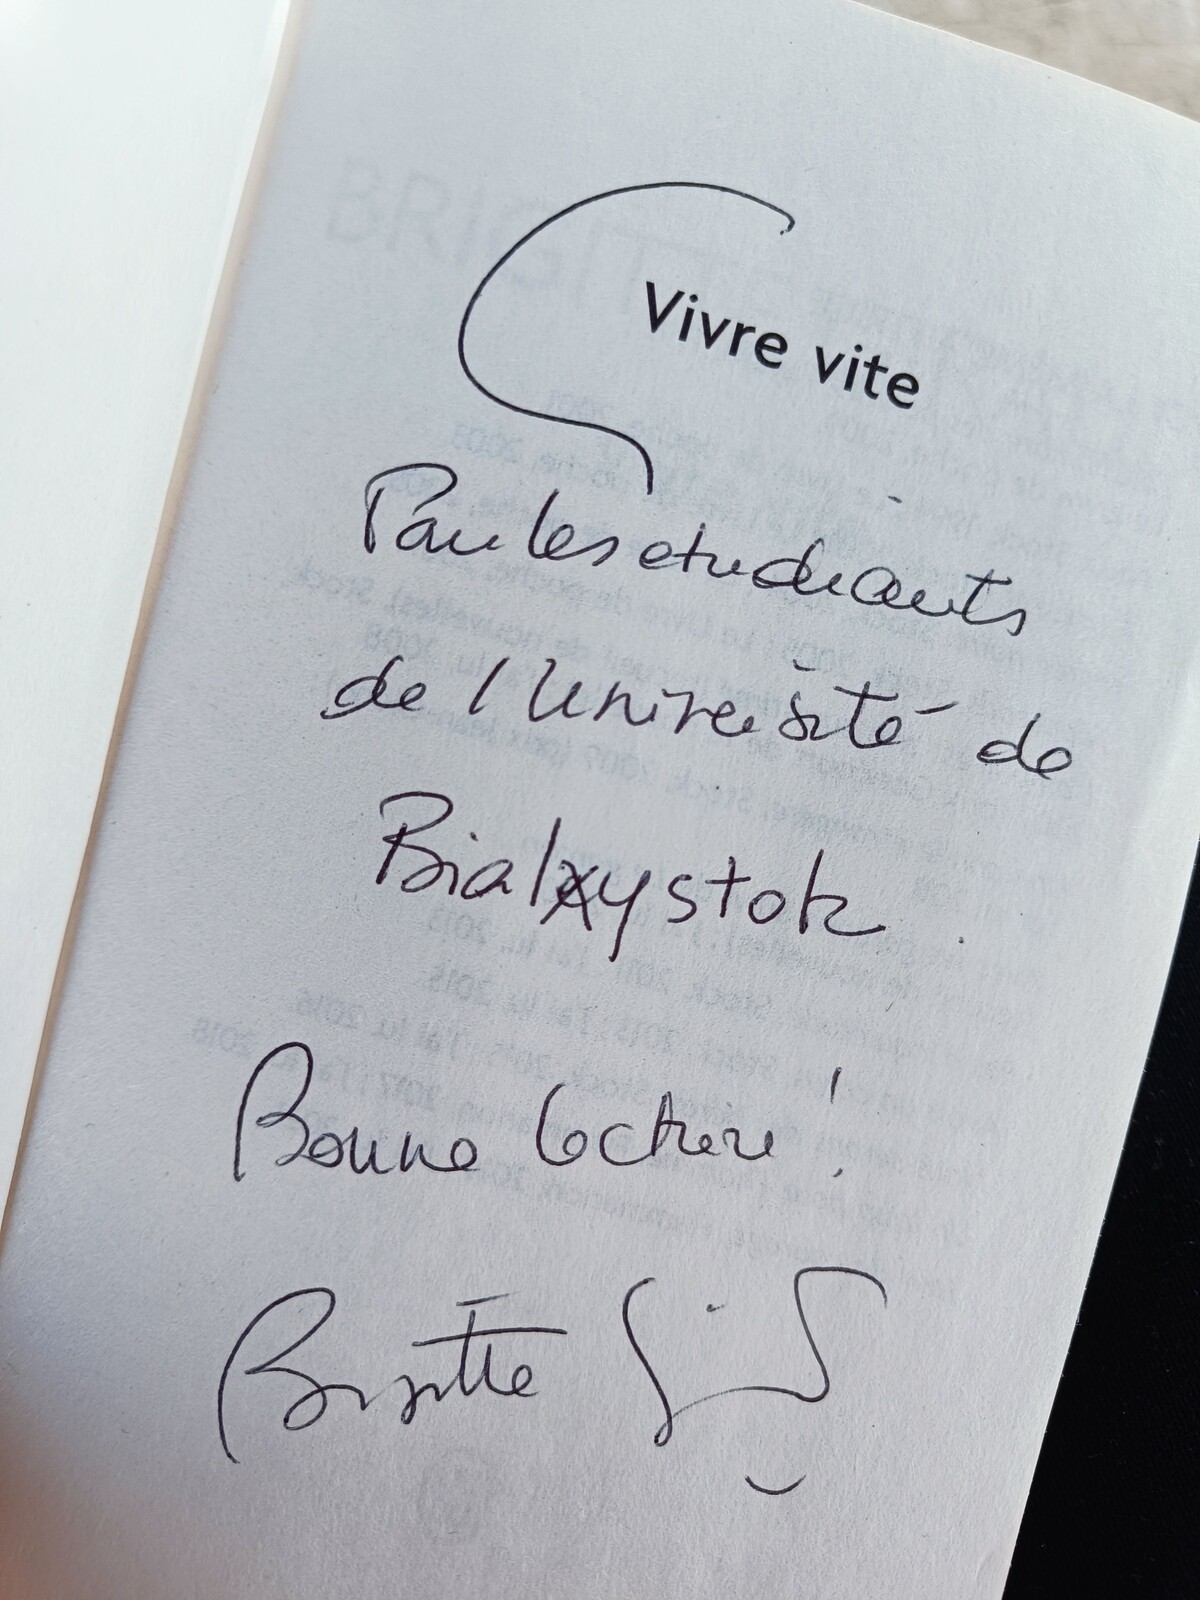 Vivre vite
Pour les etudiants
de l'Université de
Bialxystok.
Bonne lecture!
Brigitte Giraud